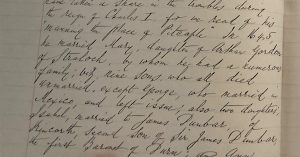 have taken a share in the troubles during
the reign of Charles I. for we read of his
"manning the place of Pitsligo". In 1645
he married Mary, daughter of Arthur Gordon
of Straloch, by whom he had a numerous
family, viz. nine sons, who all died
unmarried, except George, who married in
Mexico, and left issue; also two daughters,
Isabel, married to James Dunbar, of
second son of Sir James Dunbar,
the first Baronet of Durn;